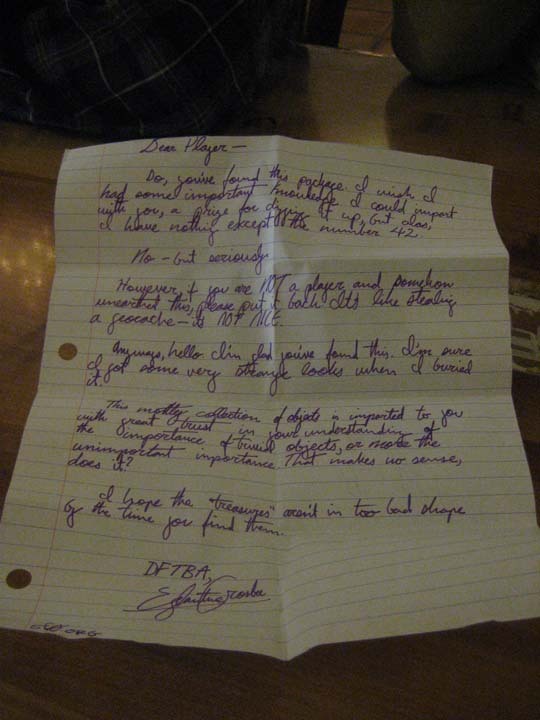 Dear Player—
So, you've found this package. I wish I
had some important knowledge I could impart
with you, a prize for digging it up, but alas,
I have nothing except the number 42.
No - but seriously.
However, if you are NOT a player, and somehow
unearthed this, please put it back. It's like stealing
a geocache - it's NOT NICE.
Anyways, hello. I'm glad you've found this. I'm sure
I got some very strange looks when I buried
it.
This motley collection of objects is imparted to you
with great trust in your understanding of
the importance of trivial objects, or more the
unimportant importance. That makes no sense,
does it?
I hope the "treasures" aren't in too bad shape
by the time you find them.
DFTBA,